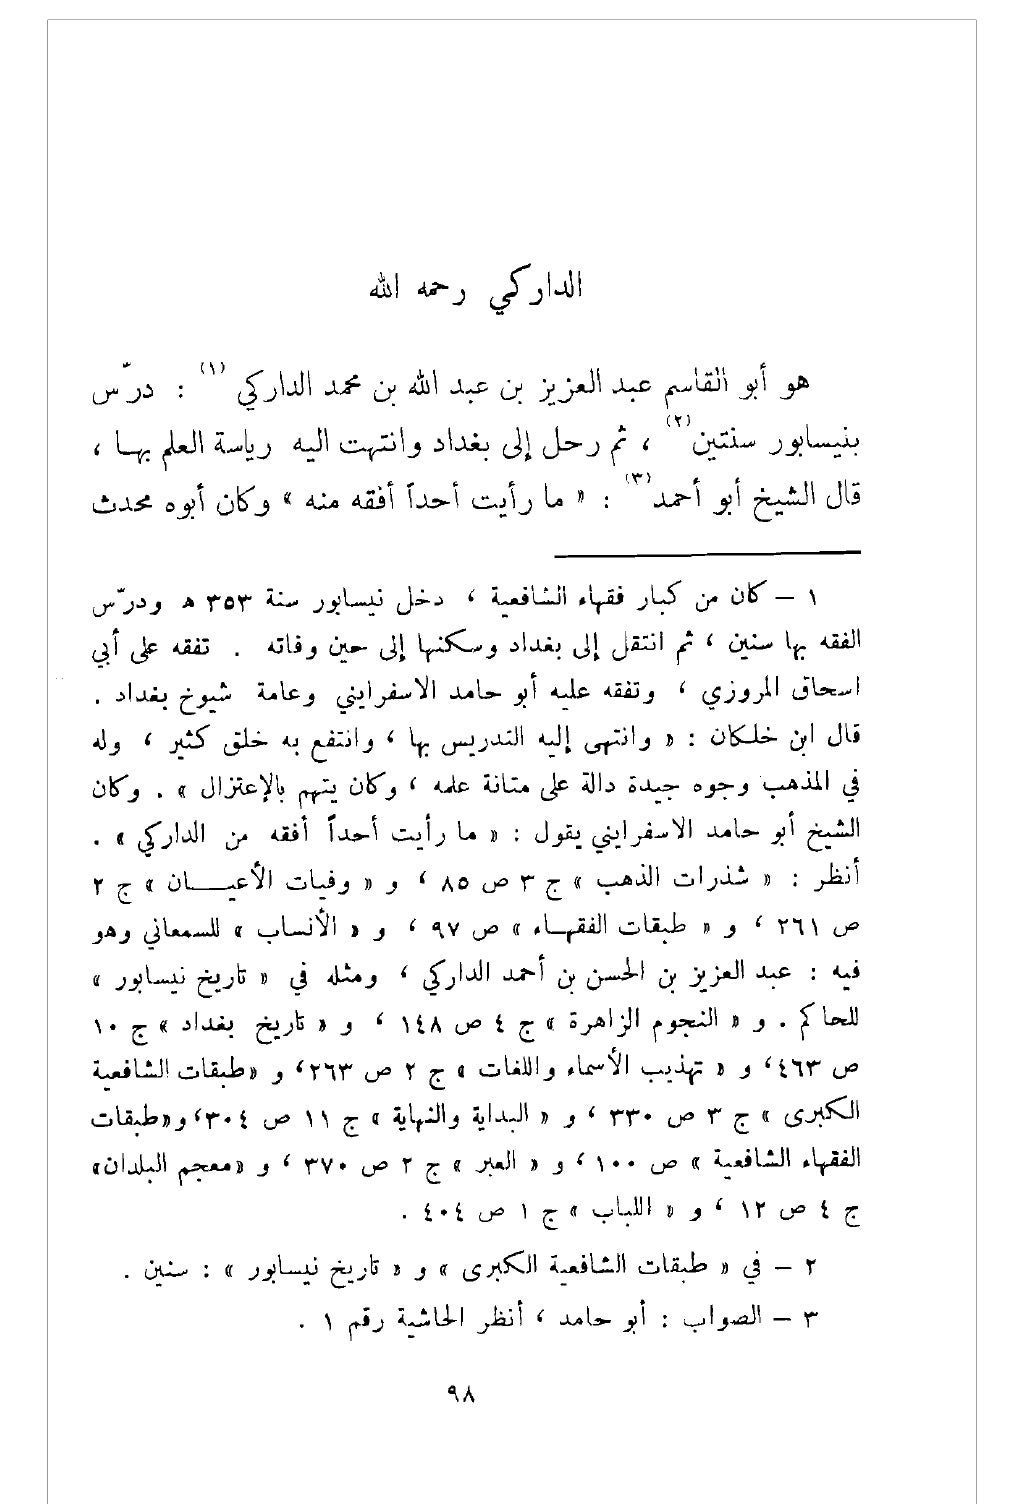 الداركي رحمه الله
هو أبو القاسم عبد العزيز بن عبد الله بن محمد الداركي (١) : درّس
بنيسابور سنتين(٢) ، ثم رحل إلى بغداد وانتهت اليه رياسة العلم بهـا ،
قال الشيخ أبو أحمد(٣) : « ما رأيت أحداً أفقه منه » وكان أبوه محدث
١ – كان من كبار فقهاء الشافعية ، دخل نيسابور سنة ٣٥٣ هـ ودرّس
الفقه بها سنين ، ثم انتقل إلى بغداد وسكنها إلى حين وفاته . تفقه على أبي
اسحاق المروزي ، وتفقه عليه أبو حامد الاسفرايني وعامة شيوخ بغداد .
قال ابن خلكان : « وانتهى إليه التدريس بها ، وانتفع به خلق كثير ، وله
في المذهب وجوه جيدة دالة على متانة علمه ، وكان يتهم بالإعتزال » . وكان
الشيخ أبو حامد الاسفرايني يقول : « ما رأيت أحداً أفقه من الداركي » .
أنظر : « شذرات الذهب » ج ٣ ص ٨٥ ، و « وفيات الأعيـــان » ج ٢
ص ٢٦١ ، و « طبقات الفقهـاء » ص ٩٧ ، و « الأنساب » للسمعاني وهو
فيه : عبد العزيز بن الحسن بن أحمد الداركي ، ومثله في « تاريخ نيسابور »
للحاكم . و « النجوم الزاهرة » ج ٤ ص ١٤٨ ، و « تاريخ بغداد » ج ١٠
ص ٤٦٣، و « تهذيب الأسماء واللغات » ج ٢ ص ٢٦٣، و «طبقات الشافعية
الكبرى » ج ٣ ص ٣٣٠ ، و « البداية والنهاية » ج ١١ ص ٣٠٤، و«طبقات
الفقهاء الشافعية » ص ١٠٠ ، و « العبر » ج ٢ ص ٣٧٠ ، و «معجم البلدان»
ج ٤ ص ١٢ ، و « اللباب » ج ١ ص ٤٠٤ .
٢ – في « طبقات الشافعية الكبرى » و « تاريخ نيسابور » : سنين .
٣ – الصواب : أبو حامد ، أنظر الحاشية رقم ١ .
٩٨